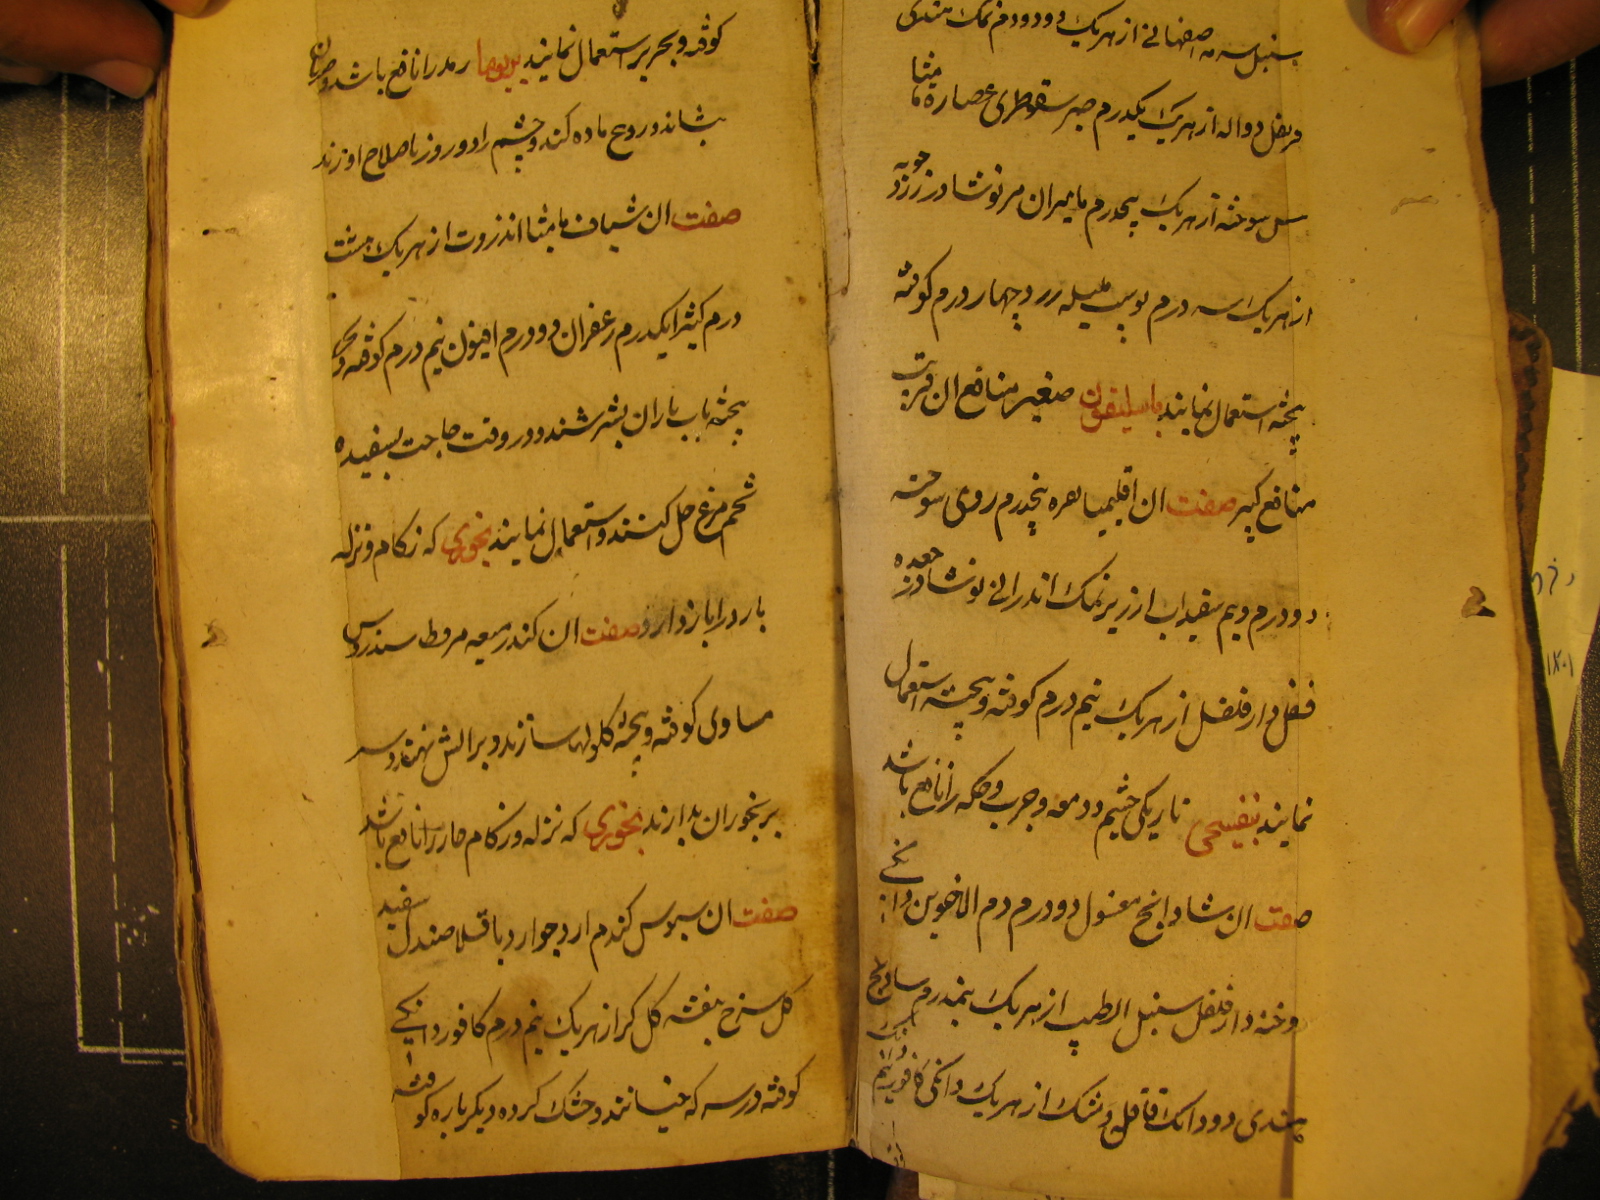 سنبل سرمه اصفهانی از هریک دو درم نمک هندی
قرنفل دواله از هریک یکدرم صبر سقوطری عصاره مامیثا
مس سوخته از هریک پنجدرم مامیران مر نوشادر زرد چوبه
از هریک سه درم پوست هلیله زرد چهار درم کوفته
پیخته استعمال نمایند باسلیقون صغیر منافع ان قریب
منافع کبیر صفت ان اقلیمیا نقره پنجدرم روی سوخته
دو درم و نیم سفیداب ارزیز نمک اندرانی نوشادر جعده
فلفل دارفلفل از هریک نیم درم کوفته و پیخته استعمال
نمایند بنفسجی تاریکی چشم و دمعه و جرب و حکه را نافع باشد
صفت ان شادانج مغسول دو درم دم الاخوین دانکی
دارفلفل سنبل الطیب از هریک نیمدرم ساذج
هندی دو دانک قاقله و مشک از هریک دانکی کافور نیم دانک
کوفته و بحریر استعمال نمایند رمد را نافع باشد و ضربان
بنشاند و ردع ماده کند و چشم را دو روز باصلاح اورند
صفت ان شیاف مامیثا انذروت از هریک هشت
درم کتیرا یکدرم زعفران دو درم افیون نیم درم کوفته و
پیخته باب باران بسرشند و در وقت حاجت بسفیده
تخم مرغ حل کنند و استعمال نمایند بخوری که زکام و نزله
بارد را باز دارد صفت ان کندر میعه مر قسط سندروس
مساوی کوفته و پیخته کلولها سازند و بر اتش نهند و سر
بر بخور ان بدارند بخوری که نزله و زکام حار را نافع باشد
صفت ان سبوس کندم ارد جو ارد باقلا صندل سفید
کل سرخ بنفشه کل از هریک نیم درم کافور دانکی
کوفته در سرکه خیسانند و خشک کرده دیکر باره کوفته